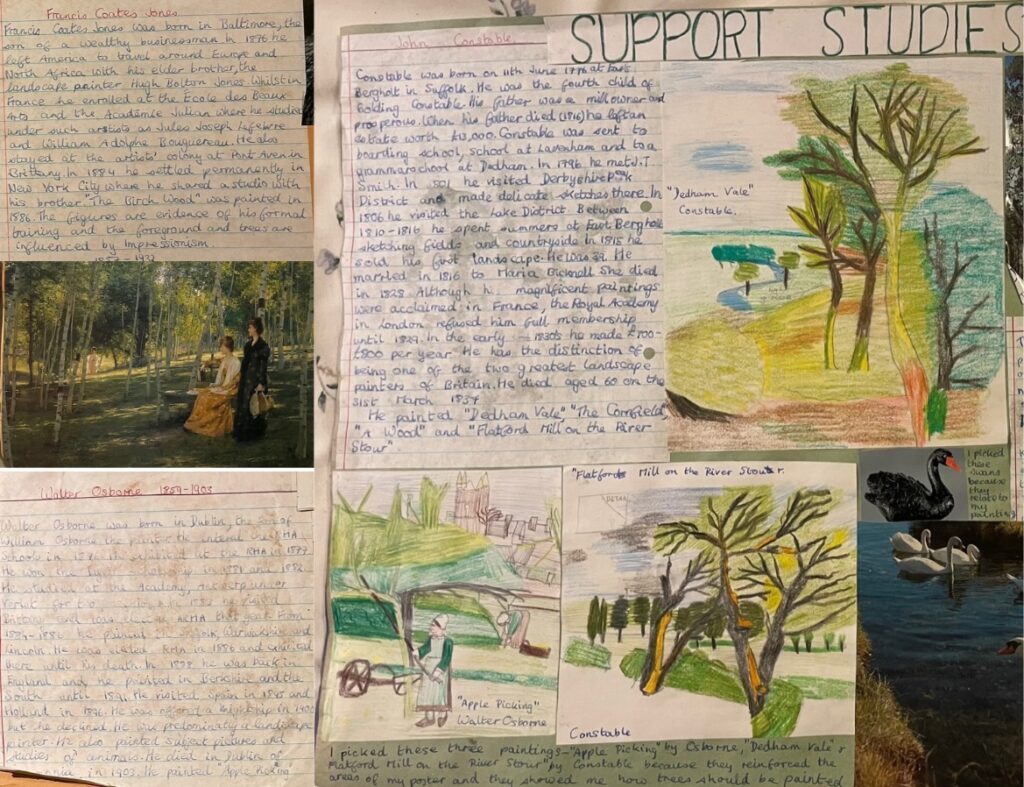 Francis Coates Jones
Francis Coates Jones was born in Baltimore, the
son of a wealthy businessman. In 1876 he
left America to travel around Europe and
North Africa with his elder brother, the
landscape painter Hugh Bolton Jones. Whilst in
France he enrolled at the Ecole des Beaux
Arts and the Académie Julian where he studied
under such artists as Jules Joseph Lefevre
and William Adolphe Bouguereau. He also
stayed at the artists' colony at Pont Aven in
Brittany. In 1884 he settled permanently in
New York City where he shared a studio with
his brother. "The Birch Wood" was painted in
1886. The figures are evidence of his formal
training and the foreground and trees are
influenced by Impressionism.
Walter Osborne 1859-1903
Walter Osborne was born in Dublin, the son of
William Osborne, the painter. He entered the RHA
schools in
He won the in 1881 and 1882.
He studied at the Academy, Antwerp under
Verlat for
Brittany and was ARHA that year. From
1884-1886 he painted in Suffolk, Warwickshire and
Lincoln. He was elected RHA in 1886 and exhibited
there until his death. In he was back in
England and he painted in Berkshire and the
South until 1891. He visited Spain in 1895 and
Holland in 1896. He was offered a knighthood in 1900
but he declined. He was predominatly a landscape
painter. He also painted subject pictures and
studies of animals. He died in Dublin of
in 1903. He painted "Apple Picking"
SUPPORT STUDIES
John Constable
Constable was born on 11th June 1776 at East
Bergholt in Suffolk. He was the fourth child of
Golding Constable. His father was a mill owner and
prosperous. When his father died (1816) he left an
estate worth £13,000. Constable was sent to
boarding school, school at Lavenham and to a
grammar school at Dedham. In 1796 he met J.T
Smith. In 1801 he visited Derbyshire Peak
District and made delicate sketches there. In
1806 he visited the Lake District. Between
1810-1816 he spent summers at East Bergholt
sketching fields and countryside. In 1815 he
sold his first landscape. He was 39. He
married in 1816 to Maria Bicknell. She died
in 1828. Although his magnificent paintings
were acclaimed in France, the Royal Academy
in London refused him full membership
until 1829. In the early 1830s he made £700-
£800 per year. He has the distinction of
being one of the two greatest landscape
painters of Britain. He died aged 60 on the
31st March 1837
He painted "Dedham Vale", "The Cornfield",
"A Wood" and "Flatford Mill on the River
Stour".
"Dedham Vale"
Constable.
I picked
these
swans
because
they
relate to
my
painting
"Flatford Mill on the River Stour.
"Apple Picking"
Walter Osborne
Constable
I picked these three paintings - "Apple Picking" by Osborne, "Dedham Vale" &
Flatford Mill on the River Stour" by Constable because they reinforced the
areas of my poster and they showed me how trees should be painted